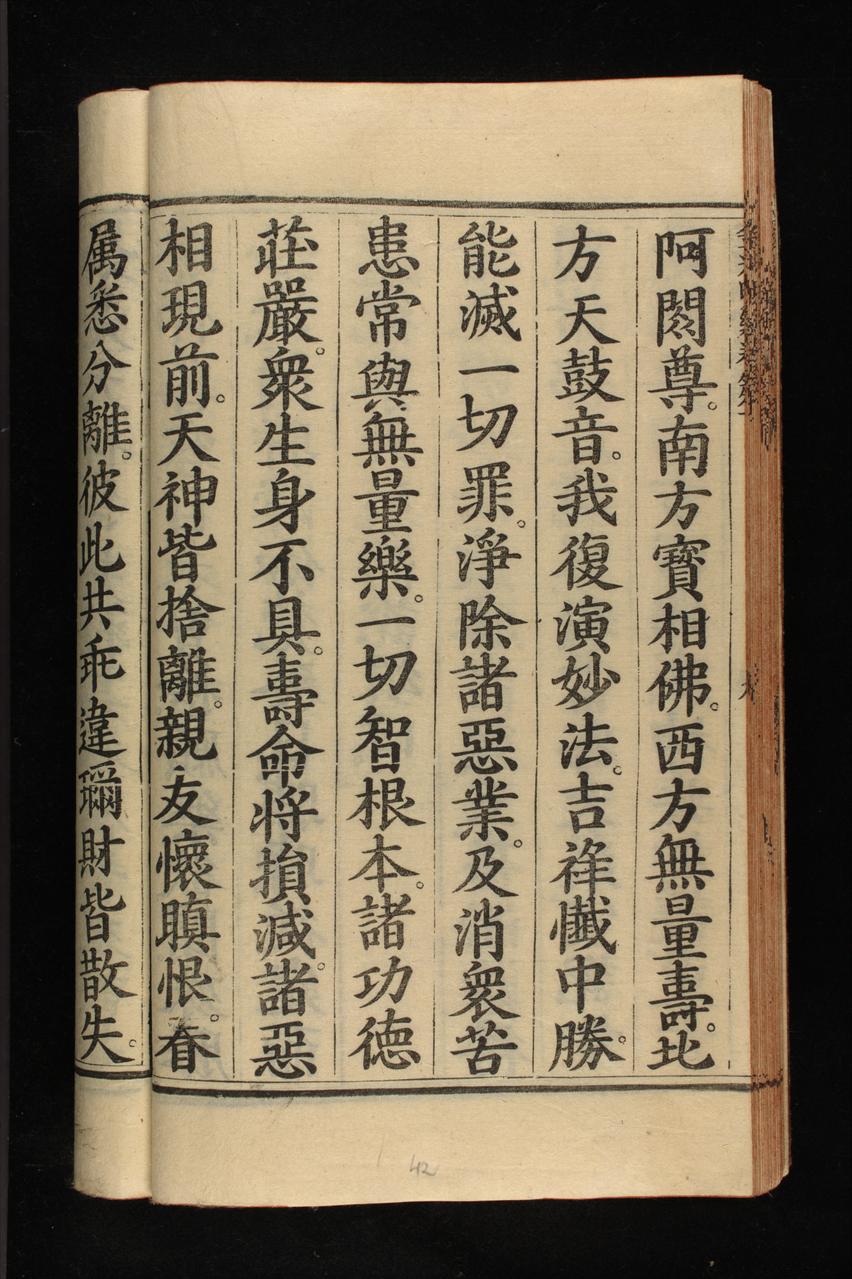 阿閦尊。南方寶相佛。西方無量壽。北
方天鼓音。我復演妙法。吉祥懺中勝。
能滅一切罪。淨除諸惡業。及消衆苦
患常與無量樂。一切智根本。諸功德
莊嚴。衆生身不具。壽命将損減。諸惡
相現前。天神皆捨離。親友懷瞋恨。眷
属悉分離。彼此共乖違璢財皆散失。
42